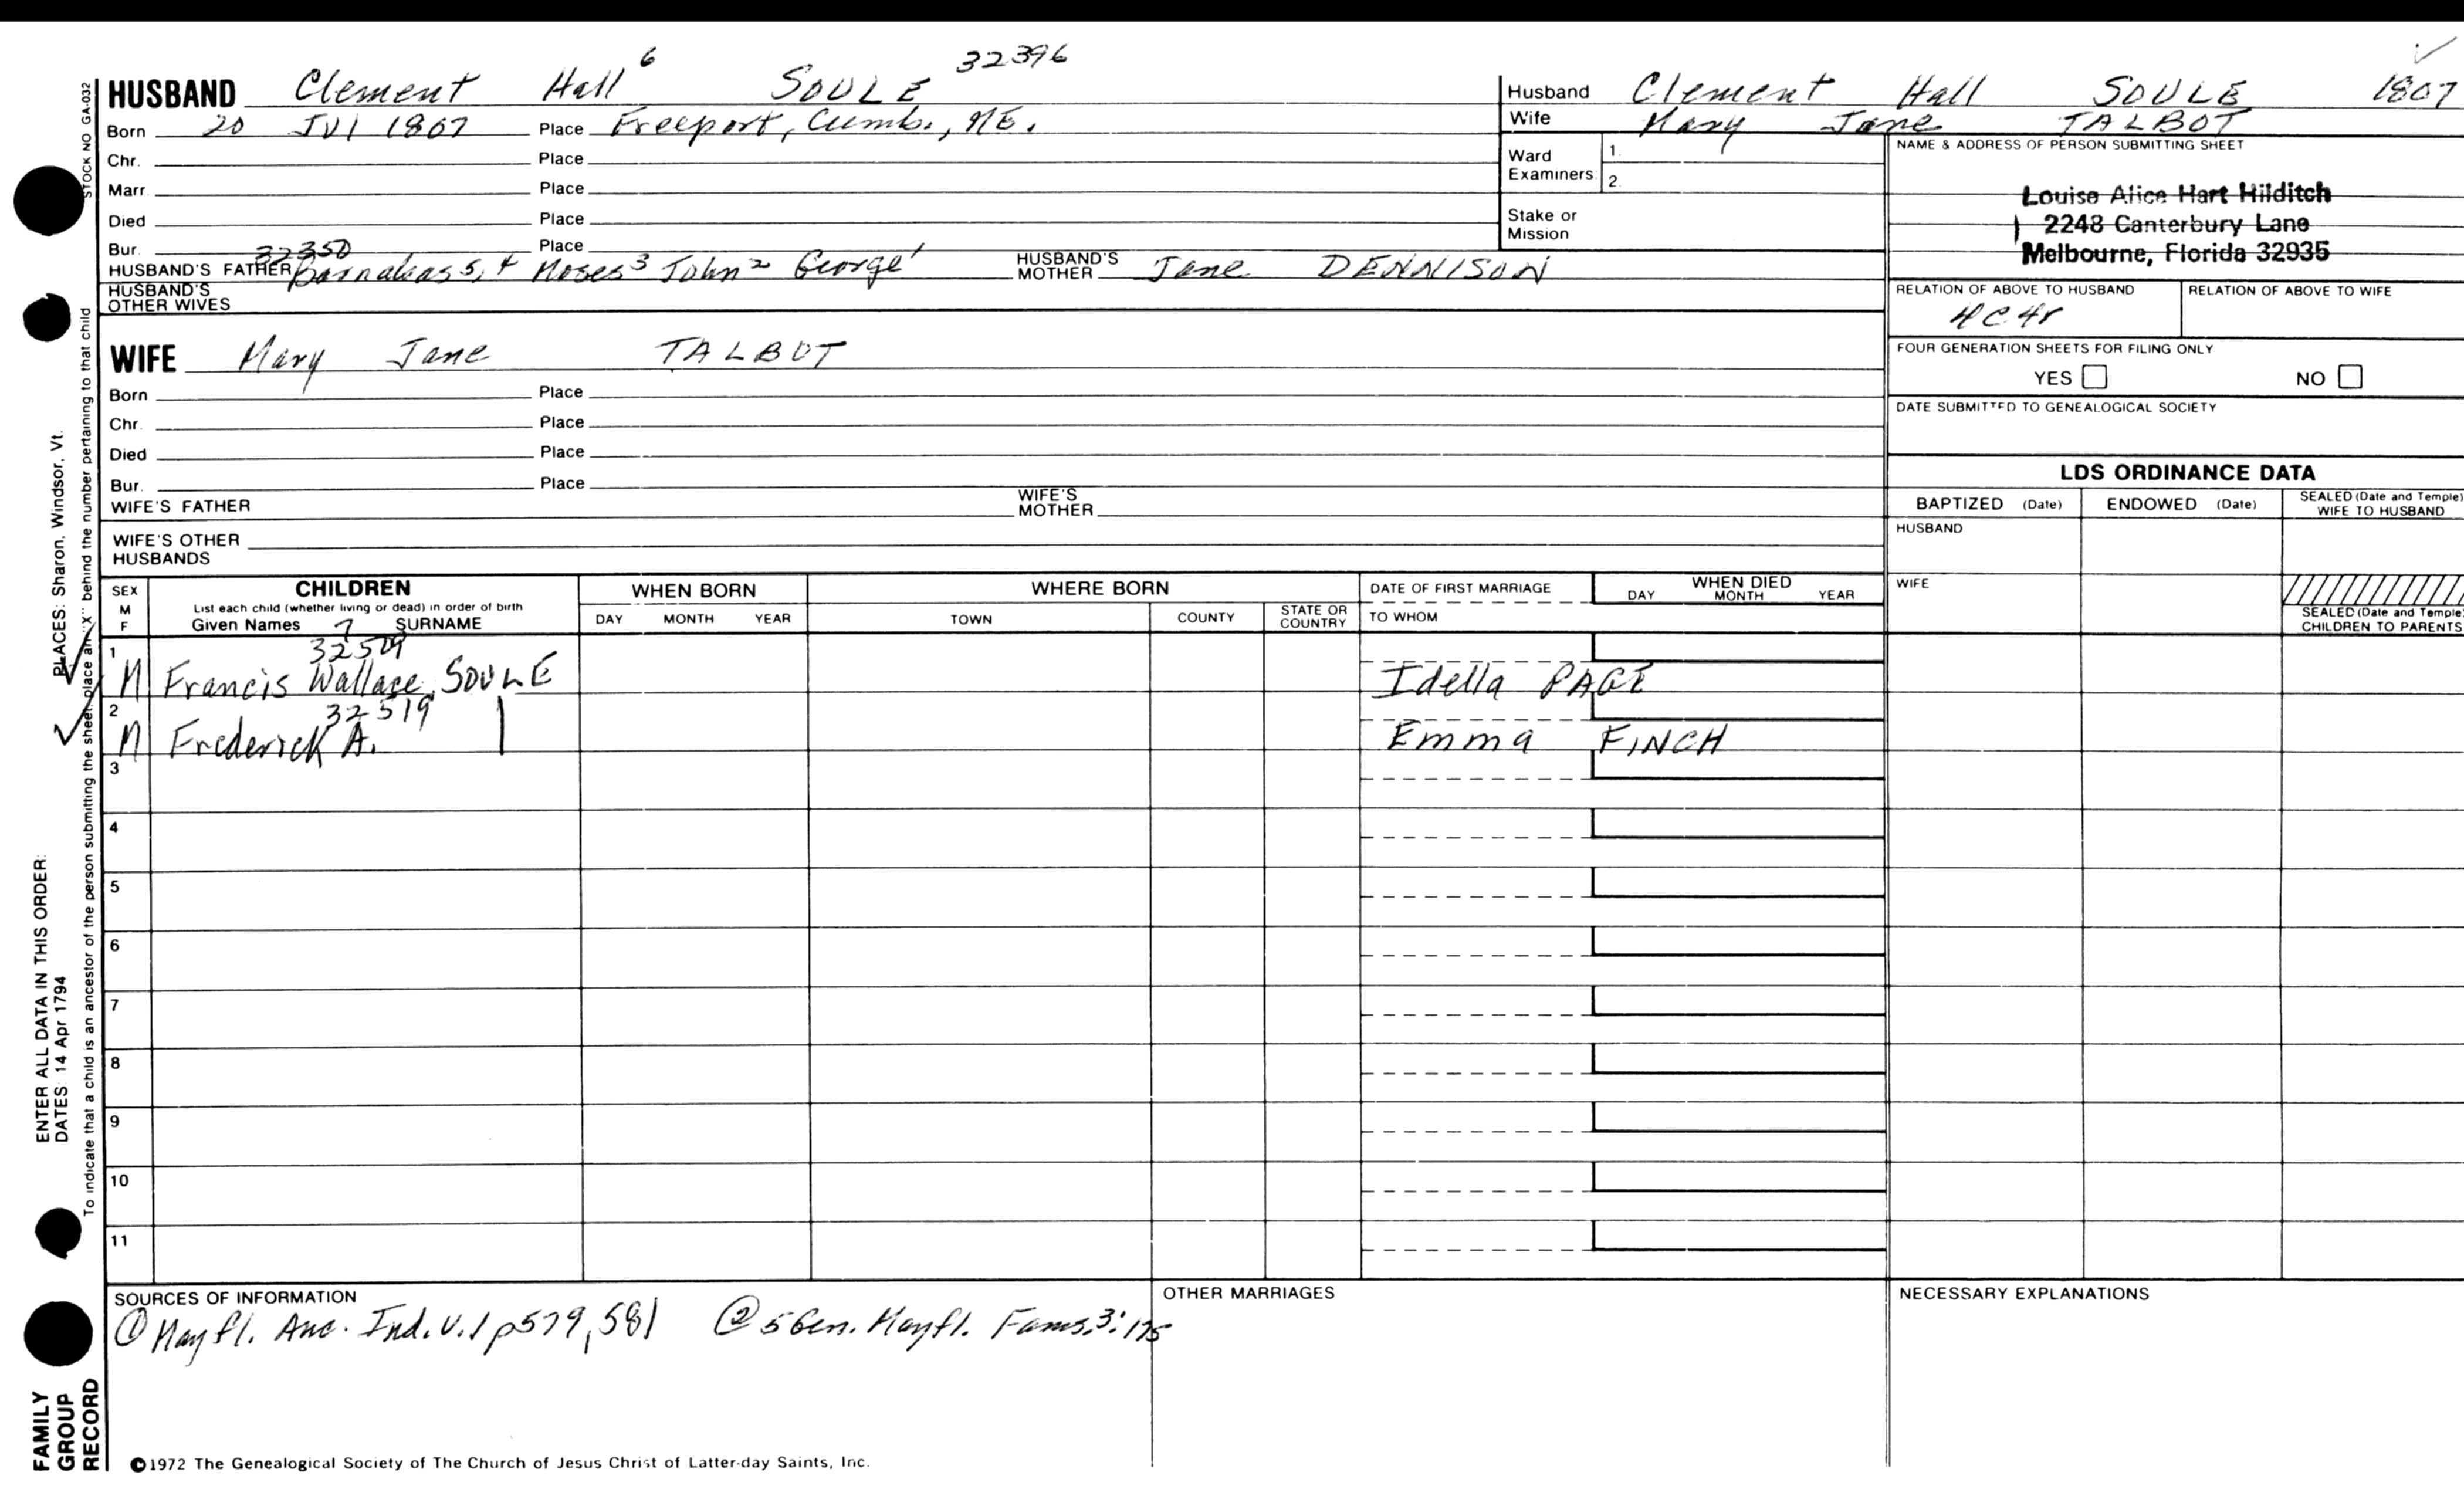 HUSBAND Clement Hall 6 SOULE 32396
Born 20 JUl 1807 Place Freeport, Cumb., ME.
Chr. Place
Marr. Place
Died Place
Bur. Place
32350
HUSBAND'S FATHER Barnabas 5, 4 Moses 3 John 2 George 1 HUSBAND'S MOTHER Jane DENNISON
HUSBAND'S OTHER WIVES
Husband Clement Hall SOULE 1807
Wife Mary Jane TALBOT
Ward Examiners 1. 2.
Stake or Mission
NAME & ADDRESS OF PERSON SUBMITTING SHEET
Louise Alice Hart Hilditch
2248 Canterbury Lane
Melbourne, Florida 32935
RELATION OF ABOVE TO HUSBAND RELATION OF ABOVE TO WIFE
4C4r
FOUR GENERATION SHEETS FOR FILING ONLY
YES NO
DATE SUBMITTED TO GENEALOGICAL SOCIETY
WIFE Mary Jane TALBOT
Born Place
Chr. Place
Died Place
Bur. Place
WIFE'S FATHER WIFE'S MOTHER
WIFE'S OTHER HUSBANDS
LDS ORDINANCE DATA
BAPTIZED (Date) ENDOWED (Date) SEALED (Date and Temple) WIFE TO HUSBAND
HUSBAND
WIFE
SEALED (Date and Temple) CHILDREN TO PARENTS
SEX M F
CHILDREN
List each child (whether living or dead) in order of birth
Given Names 7 SURNAME
WHEN BORN
DAY MONTH YEAR
WHERE BORN
TOWN COUNTY STATE OR COUNTRY
DATE OF FIRST MARRIAGE
TO WHOM
WHEN DIED
DAY MONTH YEAR
1
32509
M Francis Wallace SOULE Idella PAGE
2
32519
M Frederick A. | Emma FINCH
3
4
5
6
7
8
9
10
11
SOURCES OF INFORMATION
① Mayfl. Anc. Ind. V.1 p579, 581 ② 5 Gen. Mayfl. Fams. 3:175
OTHER MARRIAGES
NECESSARY EXPLANATIONS
©1972 The Genealogical Society of The Church of Jesus Christ of Latter-day Saints, Inc.
STOCK NO GA-032
To indicate that a child is an ancestor of the person submitting the sheet, place an "X" behind the number pertaining to that child
ENTER ALL DATA IN THIS ORDER:
DATES: 14 Apr 1794
PLACES: Sharon, Windsor, Vt.
FAMILY GROUP RECORD